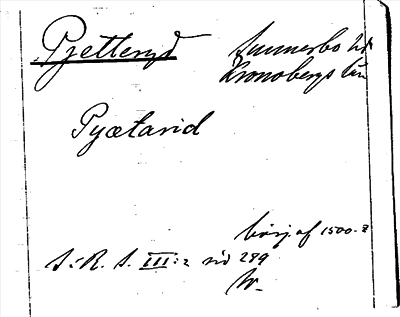 Pjetteryd
Sunnerbo hd
Kronobergs län
Pyætarid
börj. af 1500-t
S. R. S. III:2 sid 289
W-